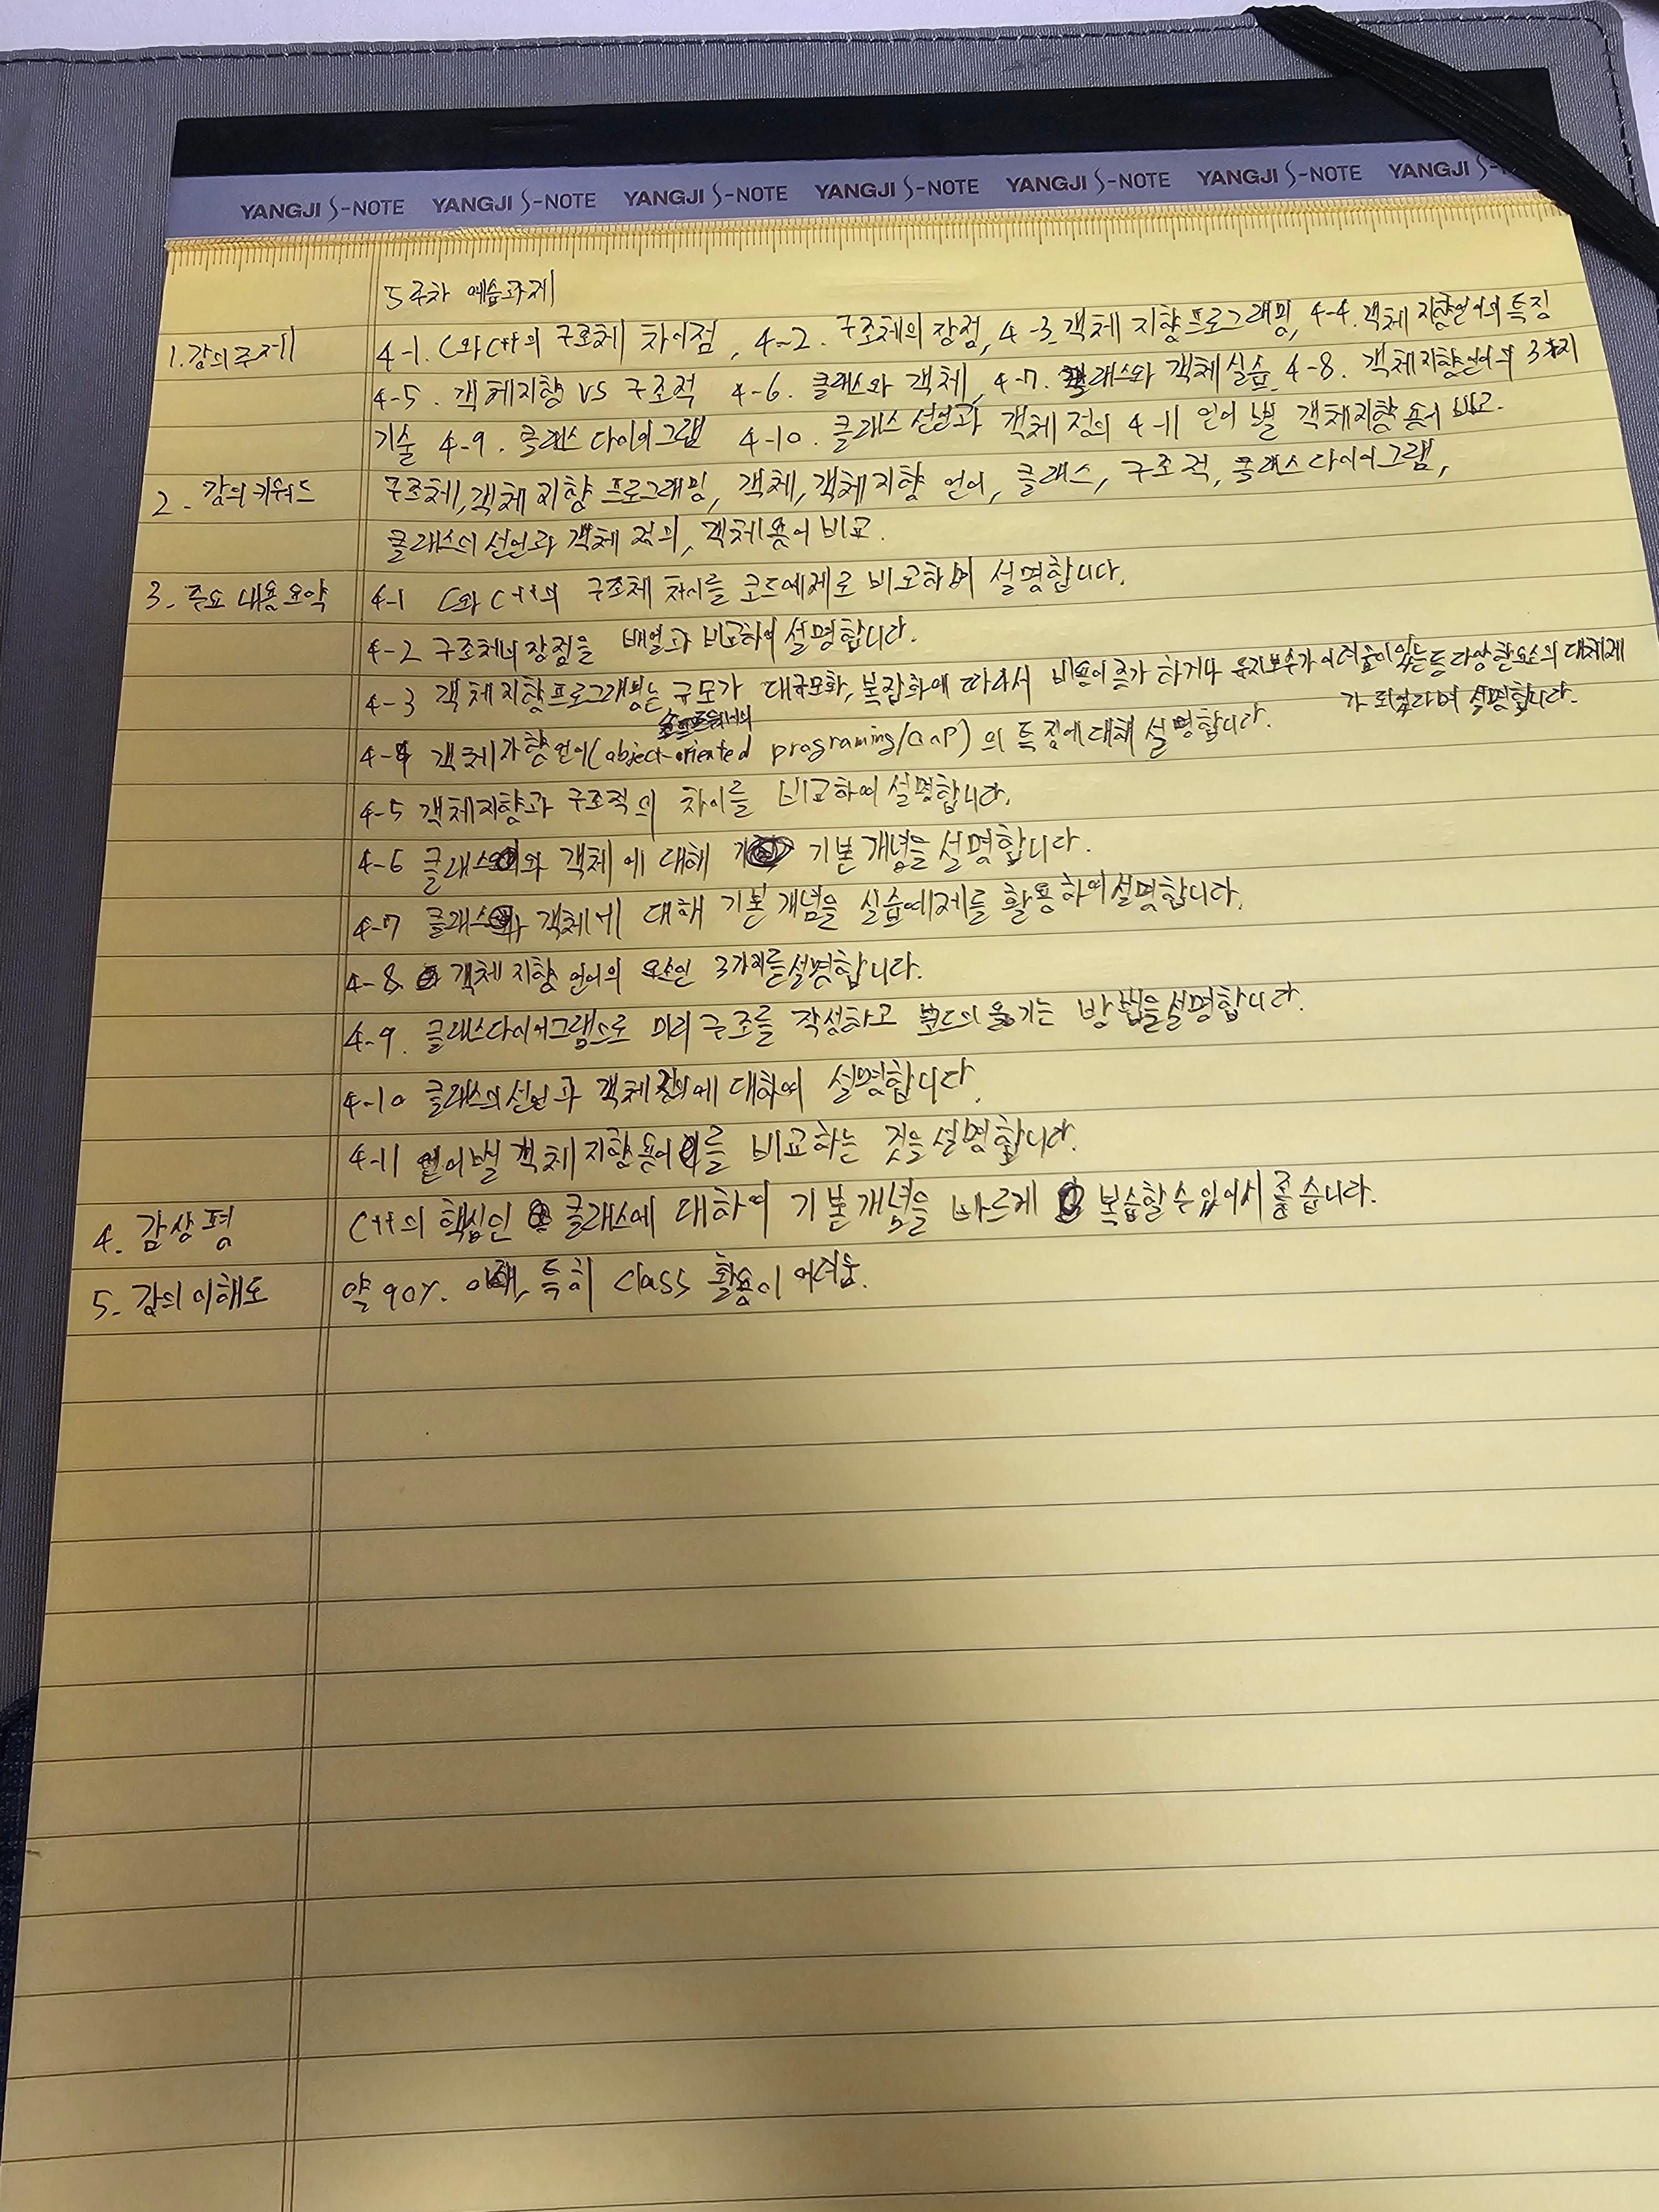 YANGJI S-NOTE YANGJI S-NOTE YANGJI S-NOTE YANGJI S-NOTE YANGJI S-NOTE YANGJI S-
5주차 예습과제
1. 강의주제 4-1. C와 C++의 구조체 차이점, 4-2. 구조체의 장점, 4-3. 객체 지향프로그래밍, 4-4. 객체 지향언어의 특징
4-5. 객체지향 VS 구조적 4-6. 클래스와 객체, 4-7. 클래스와 객체실습 4-8. 객체지향언어의 3가지
기술 4-9. 클래스 다이어그램 4-10. 클래스 선언과 객체 정의 4-11 언어 별 객체지향 용어 비교.
2. 강의키워드 구조체, 객체 지향 프로그래밍, 객체, 객체지향 언어, 클래스, 구조적, 클래스다이어그램,
클래스의 선언과 객체 정의, 객체용어 비교.
3. 주요 내용요약 4-1 C와 C++의 구조체 차이를 코드예제로 비교하며 설명합니다.
4-2 구조체의 장점을 배열과 비교하여 설명합니다.
4-3 객체 지향프로그래밍는 규모가 대규모화, 복잡화에 따라서 비용이 증가 하거나 유지보수가 어려움이있는등 다양한요소의 대체제
가 되었다며 설명합니다.
4-4 객체지향언어(object-oriented programing/OOP)의 특징에대해 설명합니다.
4-5 객체지향과 구조적의 차이를 비교하여 설명합니다.
4-6 클래스와 객체에 대해 기본개념을 설명합니다.
4-7 클래스와 객체에 대해 기본개념을 실습예제를 활용하여설명합니다.
4-8 객체 지향 언어의 요소인 3가지를설명합니다.
4-9. 클래스다이어그램으로 미리 구조를 작성하고 코드의 옮기는 방법을설명합니다.
4-10 클래스의선언과 객체 정의에 대하여 설명합니다
4-11 언어별 객체 지향용어를 비교하는 것을설명합니다.
4. 감상평 C++의 핵심인 클래스에 대하여 기본개념을 바르게 복습할수있어서 좋습니다.
5. 강의이해도 약 90%. 이해, 특히 class 활용이 어려움.